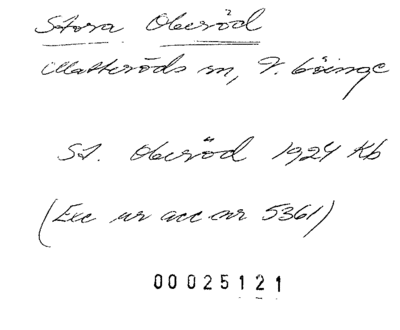 Stora Oberöd
Matteröds sn, V. Göinge
St. Oberöd 1924 Kb
(Exc ur acc nr 5361)
00025121